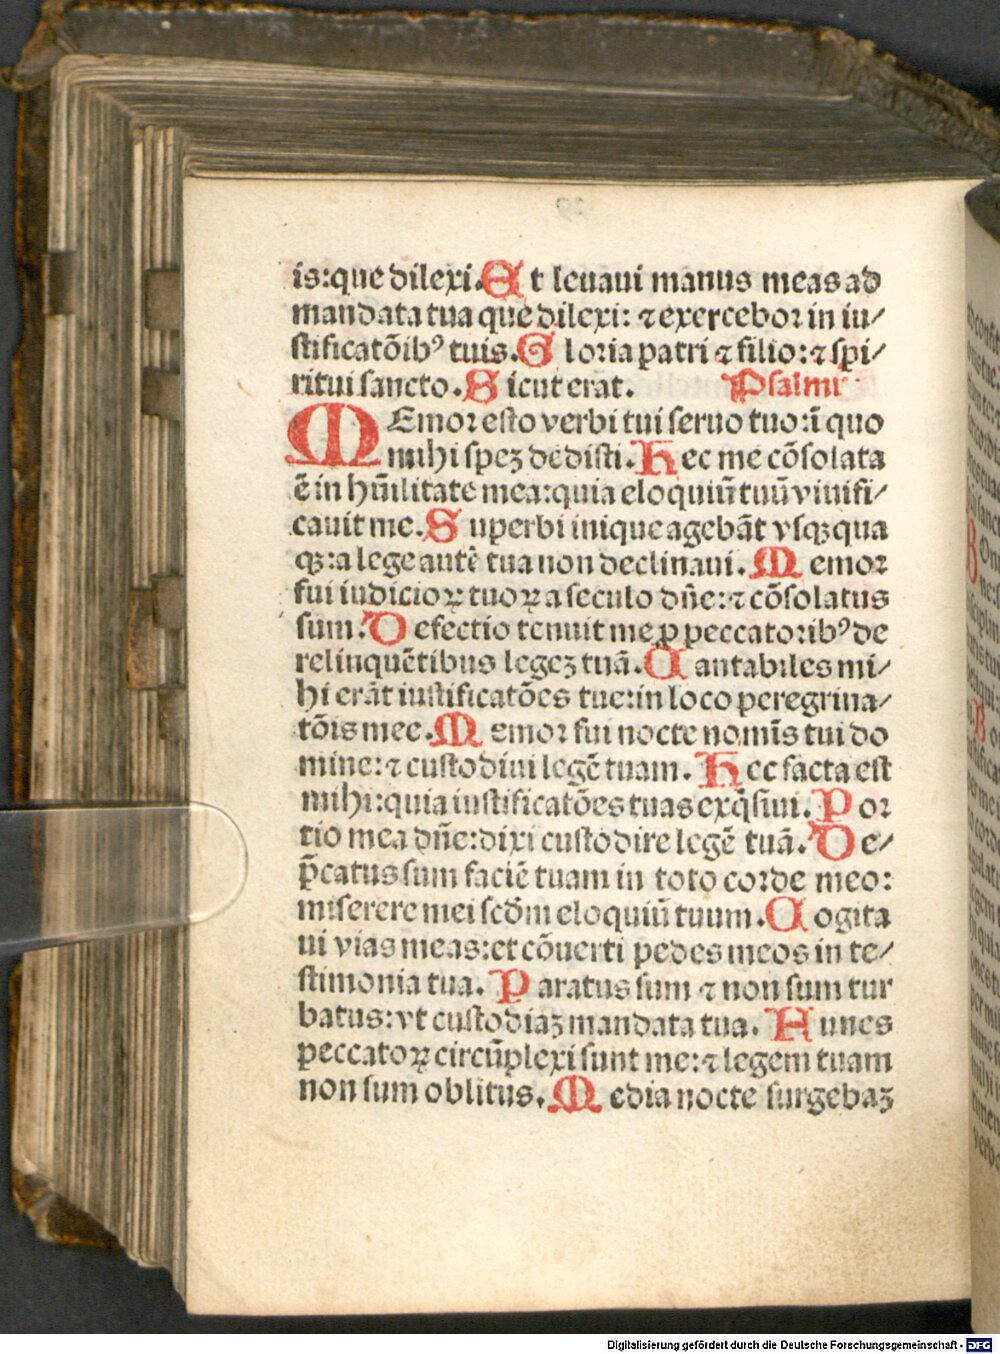 is:que dilexi. Et leuaui manus meas ad
mandata tua que dilexi: ⁊ exercebor in iu/
stificatōibꝰ tuis. Gloria patri ⁊ filio: ⁊ spi/
ritui sancto. Sicut erat. Psalmꝰ
MEmor esto verbi tui seruo tuo: ī quo
mihi speꝫ dedisti. Hec me cōsolata
ē in hūilitate mea: quia eloquiū tuū viuifi/
cauit me. Superbi inique agebāt vsqꝫ qua
qꝫ: a lege autē tua non declinaui. Memor
fui iudicioꝝ tuoꝝ a seculo dñe: ⁊ cōsolatus
sum. Defectio tenuit me ꝓ peccatoribꝰ de
relinquētibus legeꝫ tuā. Cantabiles mi/
hi erāt iustificatōes tue: in loco peregrina/
tōis mee. Memor fui nocte nomīs tui do
mine: ⁊ custodiui legē tuam. Hec facta est
mihi: quia iustificatōes tuas exq̄siui. Por
tio mea dñe: dixi custodire legē tuā. De/
p̄catus sum faciē tuam in toto corde meo:
miserere mei scd̄m eloquiū tuum. Cogita
ui vias meas: et cōuerti pedes meos in te/
stimonia tua. Paratus sum ⁊ non sum tur
batus: vt custodiaꝫ mandata tua. Funes
peccatoꝝ circūplexi sunt me: ⁊ legem tuam
non sum oblitus. Media nocte surgebaꝫ
Digitalisierung gefördert durch die Deutsche Forschungsgemeinschaft - DFG